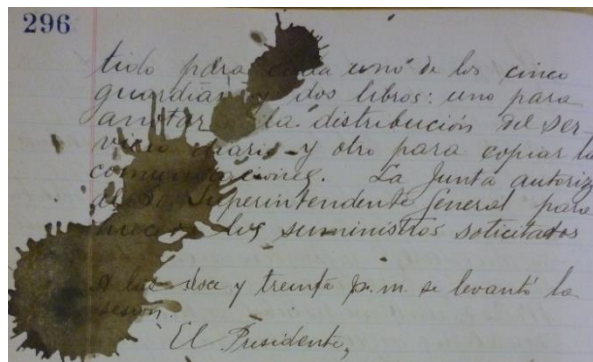 296
tido para cada uno de los cinco
guardianes dos libros: uno para
anotar la distribución del ser-
vicio diario y otro para copiar la
comunicaciones. La Junta autoriz
al Sr. Superintendente General para
hacer los suministros solicitados
A las doce y treinta p.m. se levantó la
sesión.
El Presidente,